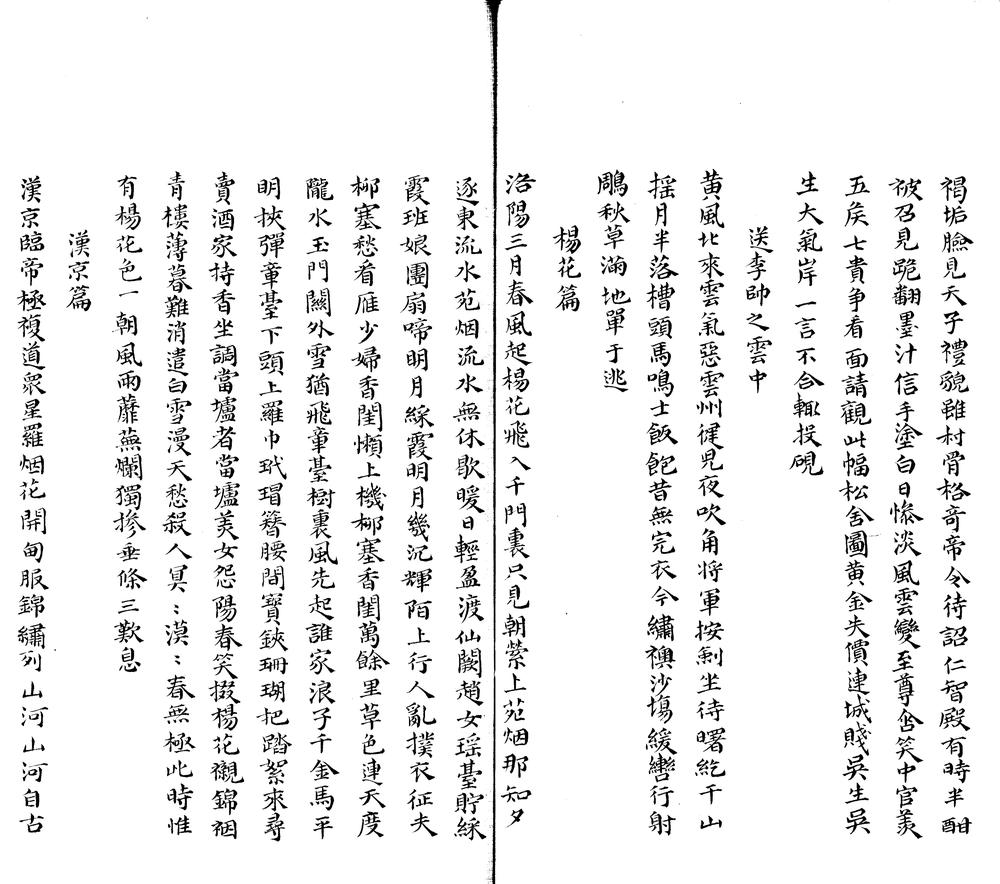 褐垢臉見天子禮貌雖村骨格奇帝令待詔仁智殿有時半酣
被召見跪翻墨汁信手塗白日慘淡風雲變至尊含笑中官羨
五矦七貴争看面請觀此幅松舍圖黄金失價連城賤吳生吳
生大氣岸一言不合輙投硯
送李帥之雲中
黄風北來雲氣惡雲州健児夜吹角將軍按劍坐待曙紇干山
揺月半落槽頭馬鳴士飯飽昔無完衣今繡襖沙塲緩轡行射
鵰秋草滿地單于逃
楊花篇
洛陽三月春風起楊花飛入千門裏只見朝縈上苑烟那知夕
逐東流水苑烟流水無休歇暖日輕盈渡仙闕趙女瑶臺貯綵
霞班娘團扇啼明月綵霞明月幾沉輝陌上行人亂撲衣征夫
桞塞愁看雁少婦香閨懶上機桞塞香閨萬餘里草色連天度
隴水玉門關外雪猶飛章臺樹裏風先起誰家浪子千金馬平
明挾彈章臺下頭上羅巾玳瑁簪腰間寶鋏珊瑚把踏絮來尋
賣酒家持香坐調當壚者當壚美女怨陽春笑掇楊花襯錦裀
青樓薄暮難消遣白雪漫天愁殺人冥：漠：春無極此時惟
有楊花色一朝風雨蘼蕪爛獨摻垂條三歎息
漢京篇
漢京臨帝極複道衆星羅烟花開甸服錦繡列山河山河自古